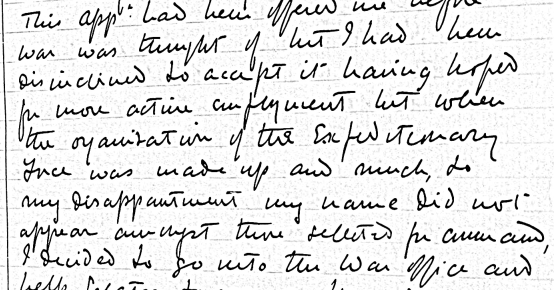 This app.t had been offered me before
war was thought of but I had been
disinclined to accept it having hoped
for more active employment but when
the organization of the Expeditionary
Force was made up and much, to
my disappointment my name did not
appear amongst those selected for command,
I decided to go into the War Office and
help